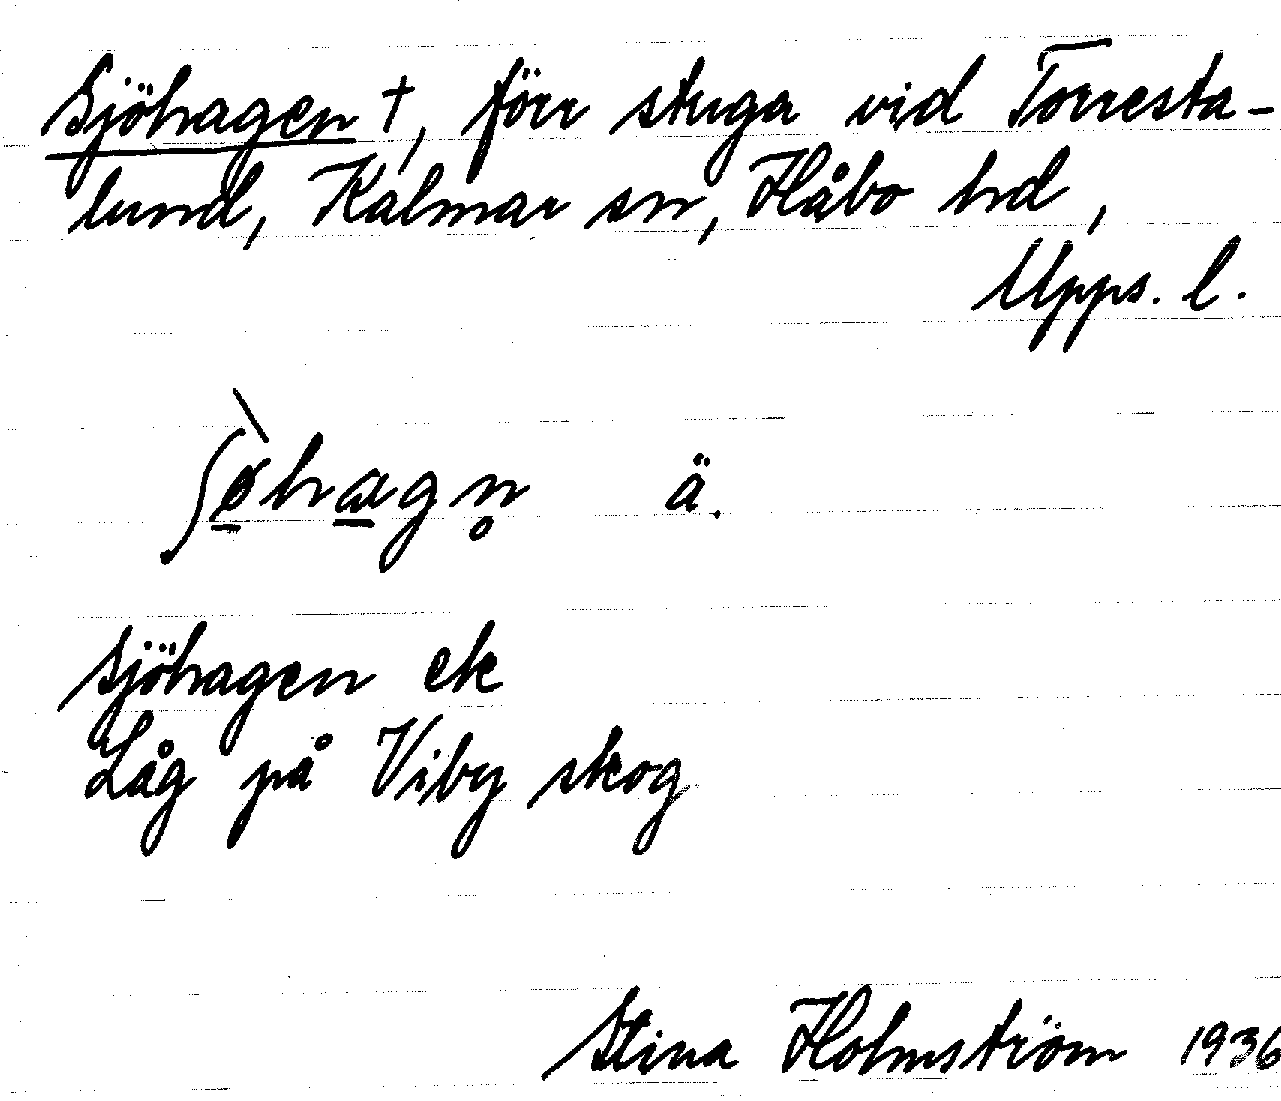 Sjöhagen †, förr stuga vid Torresta-
lund, Kalmar sn, Håbo hd,
Upps. l.
ʃø̠̀ha̠gn̥ ä.
Sjöhagen ek
Låg på Viby skog
Stina Holmström 1936